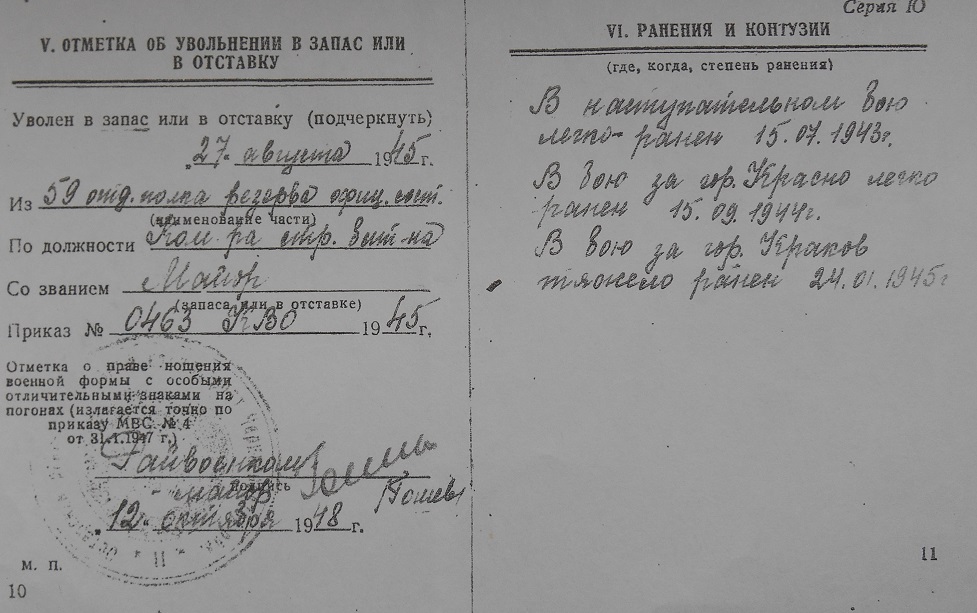 V. ОТМЕТКА ОБ УВОЛЬНЕНИИ В ЗАПАС ИЛИ
В ОТСТАВКУ
Уволен в запас или в отставку (подчеркнуть)
„27“ августа 1945 г.
Из 59 отд. полка резерва офиц. сост.
(наименование части)
По должности Ком-ра стр.
Со званием Майор
(запаса или в отставке)
Приказ № 0463 КВО 1945 г.
Отметка о праве ношения
военной формы с особыми
отличительными знаками на
погонах (излагается точно по
приказу МВС № 4
от 31.1.1947 г.)
Райвоенком
подпись
майор
„12“ октября 1948 г.
м. п.
10
Серия Ю
VI. РАНЕНИЯ И КОНТУЗИИ
(где, когда, степень ранения)
В наступательном бою
легко ранен 15.07.1943г.
В бою за гор. Красно легко
ранен 15.09.1944г.
В бою за гор. Краков
тяжело ранен 24.01.1945г
11